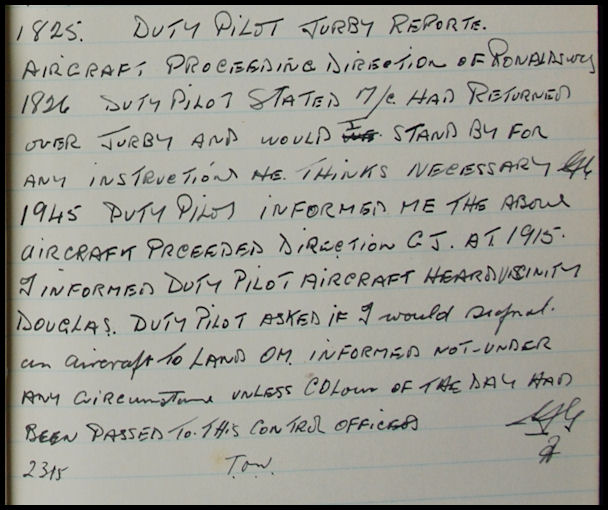 1825. DUTY PILOT JURBY REPORTE.
AIRCRAFT PROCEEDING DIRECTION OF RONALDSWAY
1826 DUTY PILOT STATED A/C HAD RETURNED
OVER JURBY AND WOULD I STAND BY FOR
ANY INSTRUCTION HE THINKS NECESSARY
1945 DUTY PILOT INFORMED ME THE ABOVE
AIRCRAFT PRCEEDED DIRECTION C.J. AT 1915.
I INFORMED DUTY PILOT AIRCRAFT HEARD VICINITY
DOUGLAS. DUTY PILOT ASKED IF I would signal.
an aircraft TO LAND OM. INFORMED NOT-UNDER
ANY circumstance UNLESS COLOUR OF THE DAY HAD
BEEN PASSED TO. THIS CONTROL OFFICERS
2315 T.O.W.